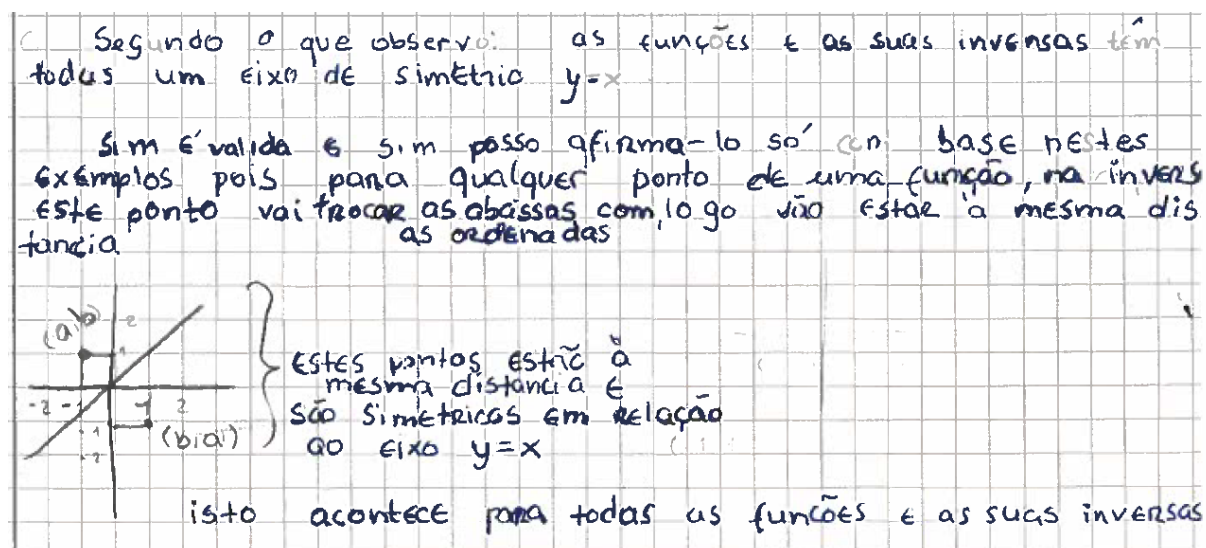 Segundo o que observo: as funções e as suas inversas têm
todas um eixo de simetria y=x
Sim é valida e sim posso afirma-lo só com base nestes
exemplos pois para qualquer ponto de uma função, na invers
este ponto vai trocar as abcissas com, logo vão estar à mesma dis
as ordenadas
tancia
(a,b)
2
1
-2 -1 1 2
-1
-2
(b,a)
Estes pontos estão à
mesma distância e
são simetricos em relação
ao eixo y=x
isto acontece para todas as funções e as suas inversas